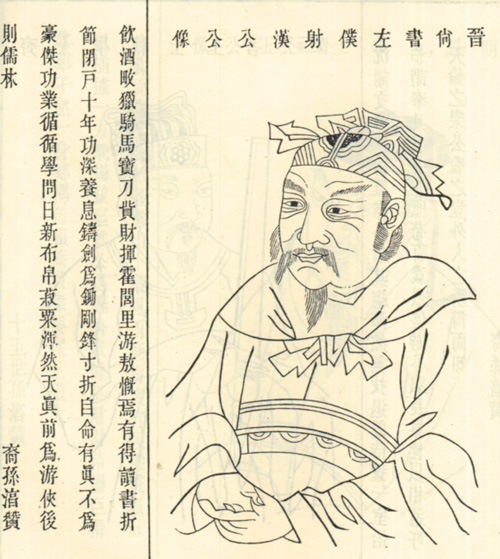 晉尚書左僕射漢公公像
飲酒畋獵騎馬寶刀貲財揮霍閭里游敖慨焉有得讀書折
節閉戸十年功深養息鑄劍爲鋤剛鋒寸折自命有眞不爲
豪傑功業循循學問日新布帛菽粟渾然天眞前爲游俠後
則儒林
裔孫贊